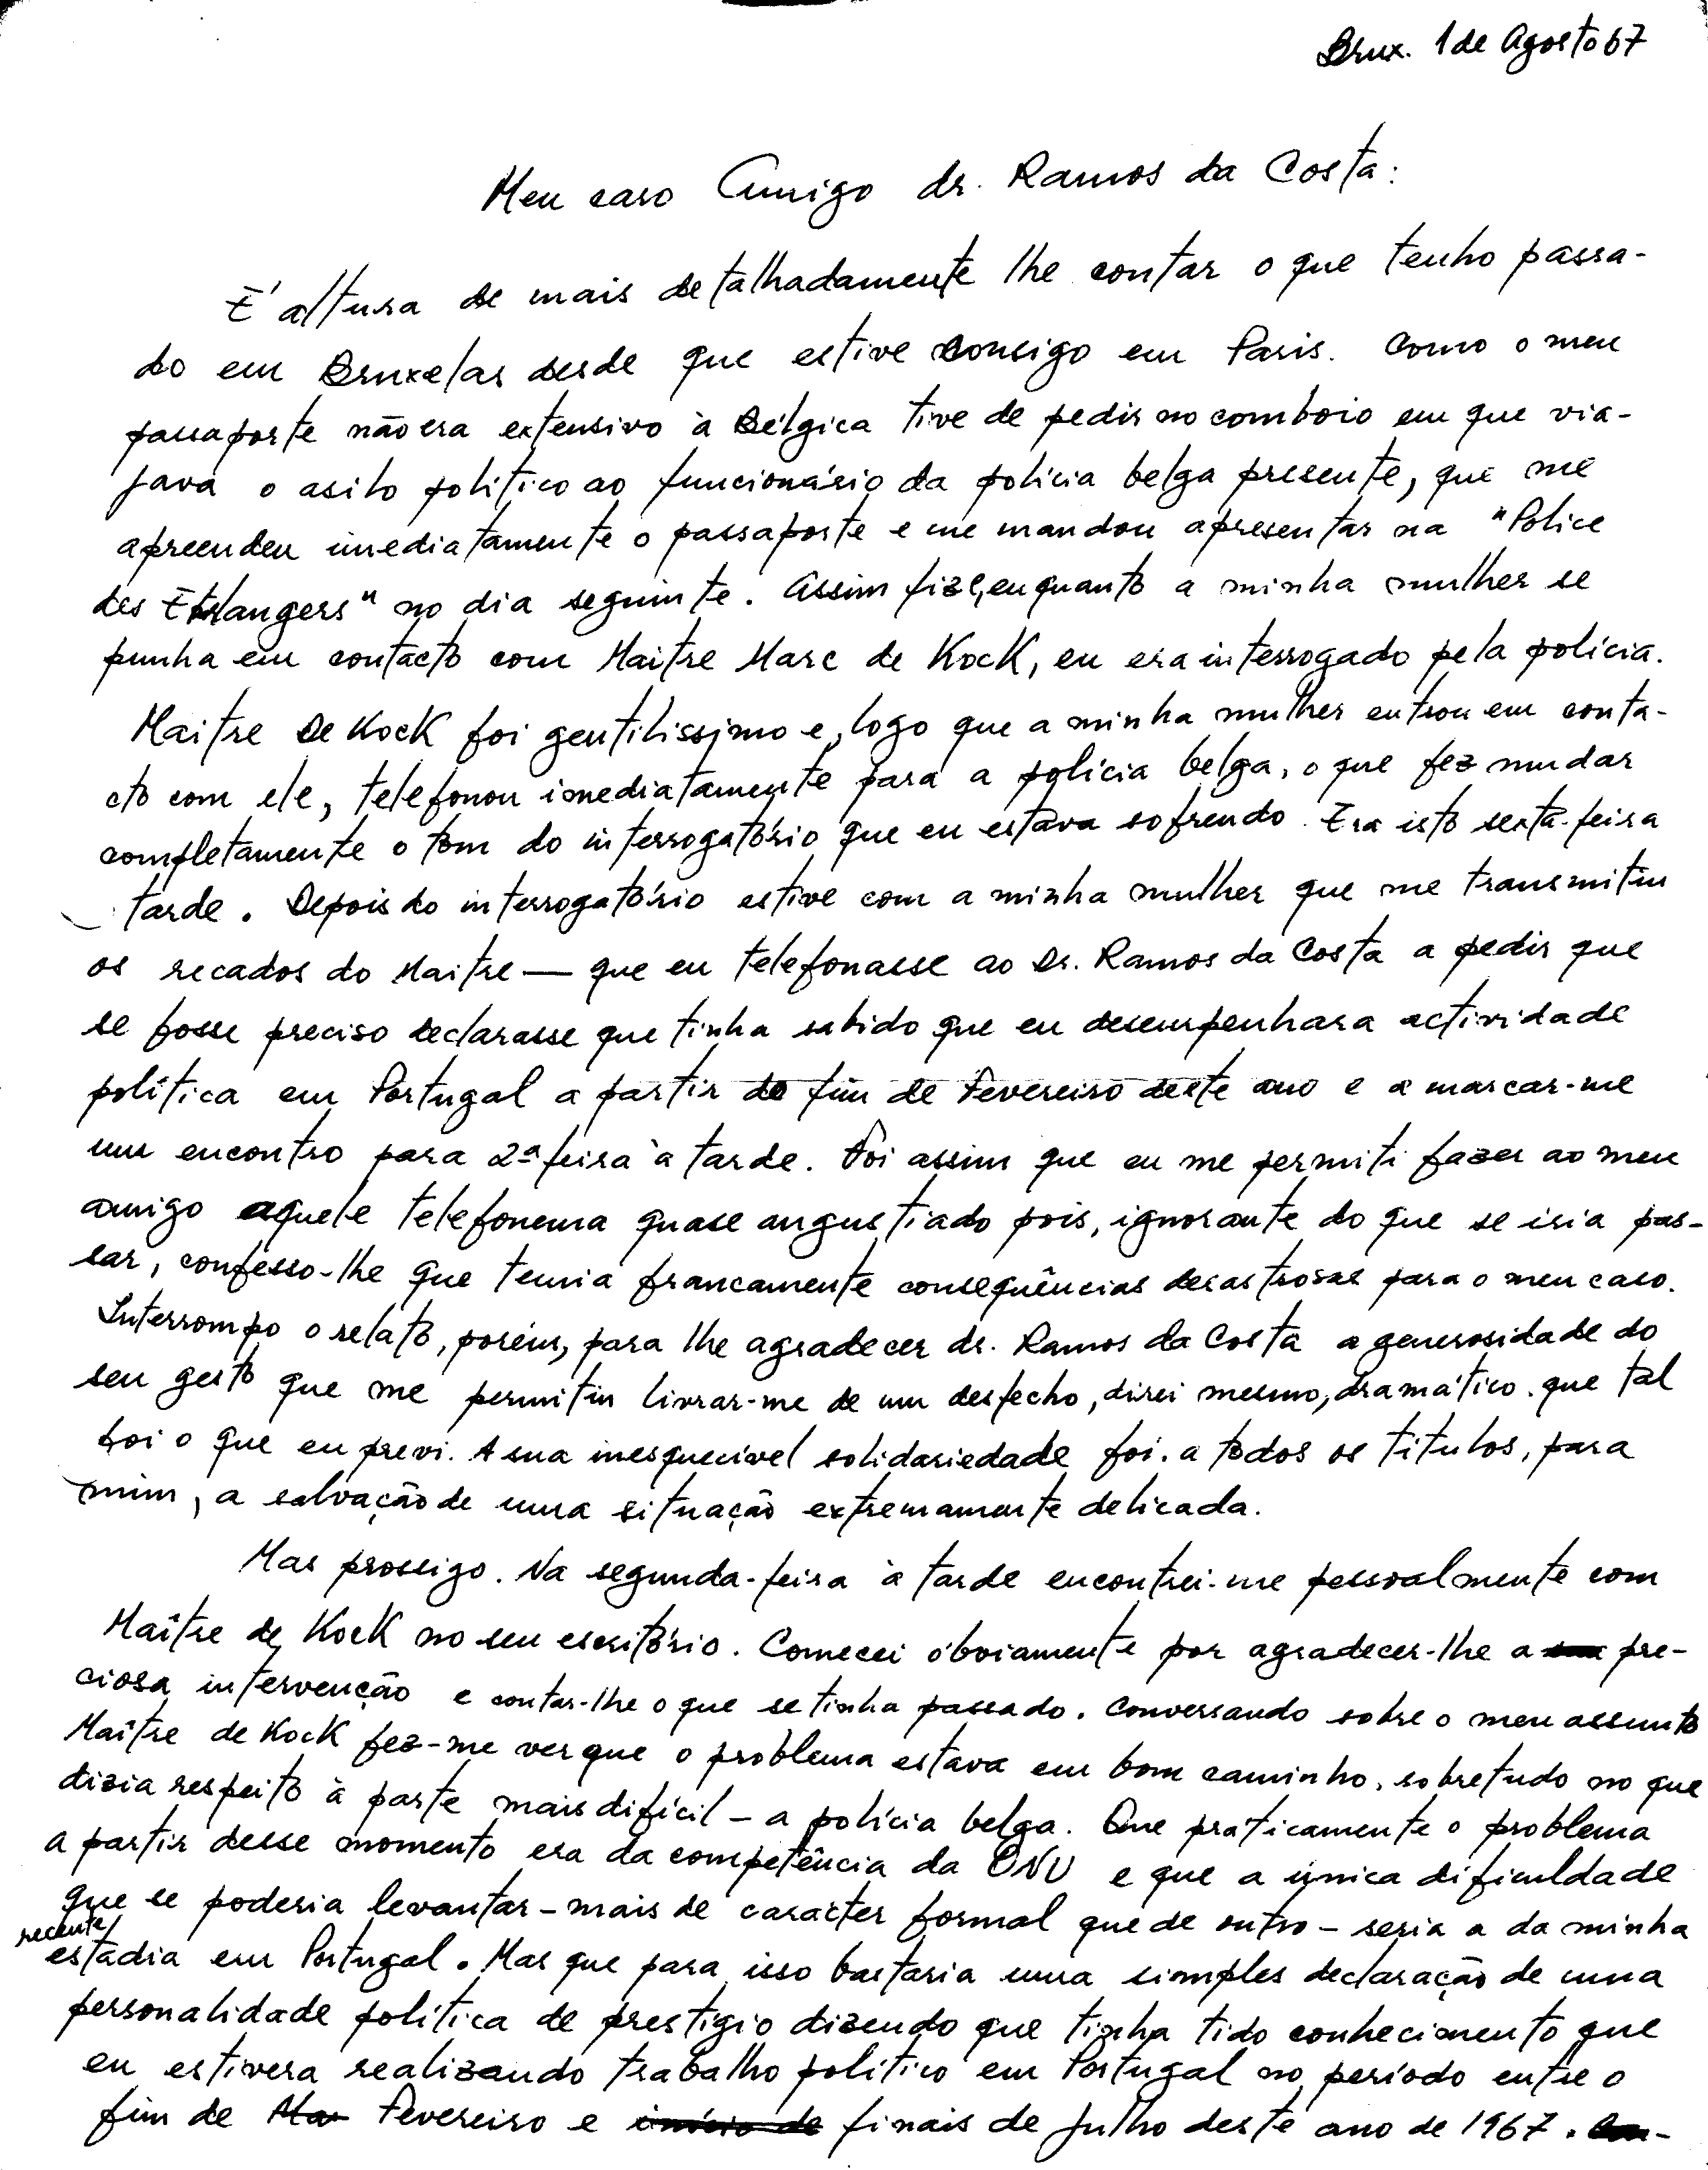 Brux. 1 de Agosto 67
Meu caro Amigo dr. Ramos da Costa:
É altura de mais detalhadamente lhe contar o que tenho passa-
do em Bruxelas desde que estive consigo em Paris. Como o meu
passaporte não era extensivo à Bélgica tive de pedir no comboio em que via-
java o asilo político ao funcionário da polícia belga presente, que me
apreendeu imediatamente o passaporte e me mandou apresentar na "Police
des Etrangers" no dia seguinte. Assim fiz e, enquanto a minha mulher se
punha em contacto com Maitre Marc de Kock, eu era interrogado pela polícia.
Maitre De Kock foi gentilissimo e, logo que a minha mulher entrou em conta-
cto com ele, telefonou imediatamente para a polícia belga, o que fez mudar
completamente o tom do interrogatório que eu estava sofrendo. Era isto sexta-feira
tarde. Depois do interrogatório estive com a minha mulher que me transmitiu
os recados do Maitre — que eu telefonasse ao Dr. Ramos da Costa a pedir que
se fosse preciso declarasse que tinha sabido que eu desempenhara actividade
política em Portugal a partir do fim de Fevereiro deste ano e a marcar-me
um encontro para 2ª feira à tarde. Foi assim que eu me permiti fazer ao meu
amigo aquele telefonema quase angustiado pois, ignorante do que se iria pas-
sar, confesso-lhe que temia francamente consequências desastrosas para o meu caso.
Interrompo o relato, porém, para lhe agradecer dr. Ramos da Costa a generosidade do
seu gesto que me permitiu livrar-me de um desfecho, direi mesmo, dramático. que tal
foi o que eu previ. A sua inesquecível solidariedade foi. a todos os titulos, para
mim, a salvação de uma situação extremamente delicada.
Mas prossigo. Na segunda-feira à tarde encontrei-me pessoalmente com
Maître de Kock no seu escritório. Comecei óbviamente por agradecer-lhe a sua pre-
ciosa intervenção e contar-lhe o que se tinha passado. Conversando sobre o meu assunto
Maître de Kock fez-me ver que o problema estava em bom caminho, sobretudo no que
dizia respeito à parte mais difícil - a polícia belga. Que praticamente o problema
a partir desse momento era da competência da ONU e que a única dificuldade
que se poderia levantar - mais de caracter formal que de outro - seria a da minha
recente
estadia em Portugal. Mas que para isso bastaria uma simples declaração de uma
personalidade política de prestígio dizendo que tinha tido conhecimento que
eu estivera realizando trabalho político em Portugal no período entre o
fim de Mar Fevereiro e início de finais de Julho deste ano de 1967.